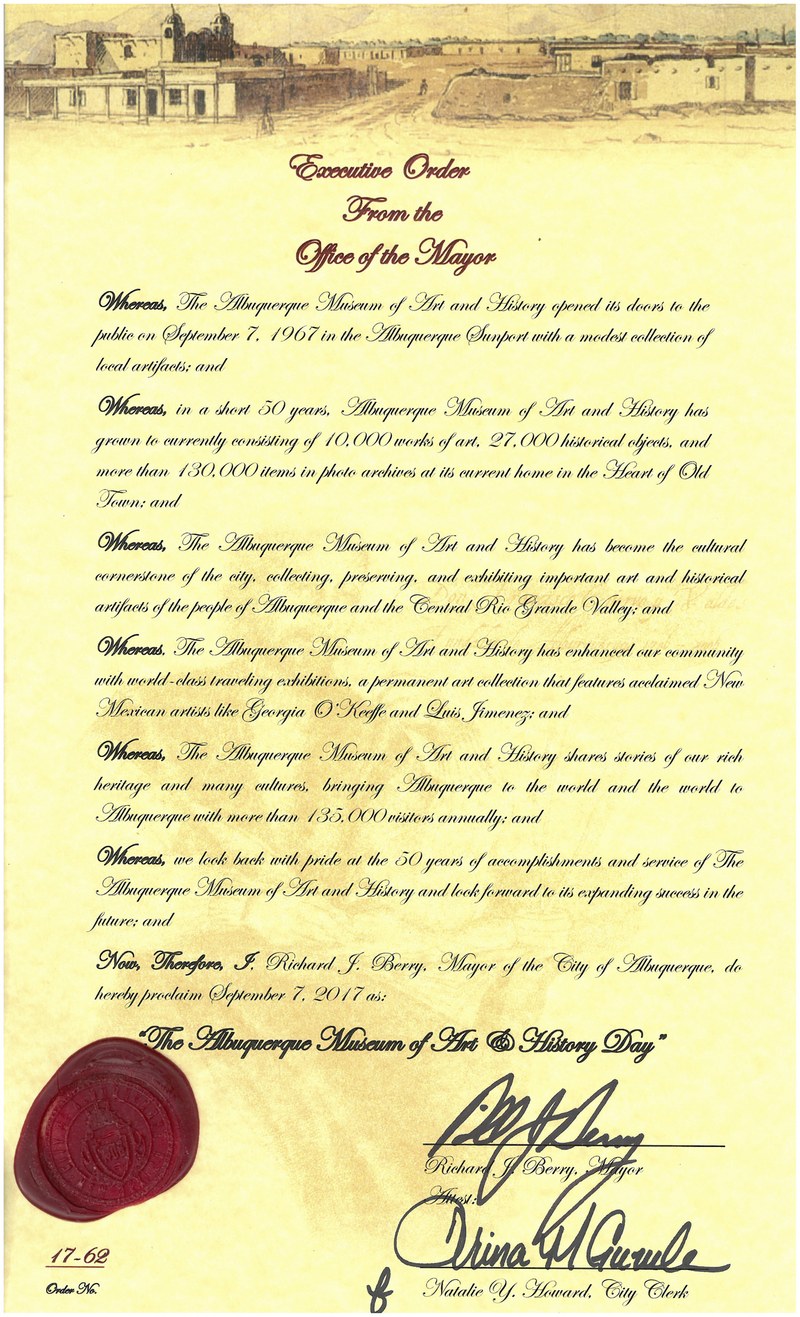 Executive Order
From the
Office of the Mayor
Whereas, The Albuquerque Museum of Art and History opened its doors to the
public on September 7, 1967 in the Albuquerque Sunport with a modest collection of
local artifacts; and
Whereas, in a short 50 years, Albuquerque Museum of Art and History has
grown to currently consisting of 10,000 works of art, 27,000 historical objects, and
more than 130,000 items in photo archives at its current home in the Heart of Old
Town; and
Whereas, The Albuquerque Museum of Art and History has become the cultural
cornerstone of the city, collecting, preserving, and exhibiting important art and historical
artifacts of the people of Albuquerque and the Central Rio Grande Valley; and
Whereas, The Albuquerque Museum of Art and History has enhanced our community
with world-class traveling exhibitions, a permanent art collection that features acclaimed New
Mexican artists like Georgia O'Keeffe and Luis Jimenez; and
Whereas, The Albuquerque Museum of Art and History shares stories of our rich
heritage and many cultures, bringing Albuquerque to the world and the world to
Albuquerque with more than 135,000 visitors annually; and
Whereas, we look back with pride at the 50 years of accomplishments and service of The
Albuquerque Museum of Art and History and look forward to its expanding success in the
future; and
Now, Therefore, I, Richard J. Berry, Mayor of the City of Albuquerque, do
hereby proclaim September 7, 2017 as:
"The Albuquerque Museum of Art & History Day"
Richard J. Berry, Mayor
Attest:
Trina M Gurule
17-62
Order No.
f
Natalie Y. Howard, City Clerk